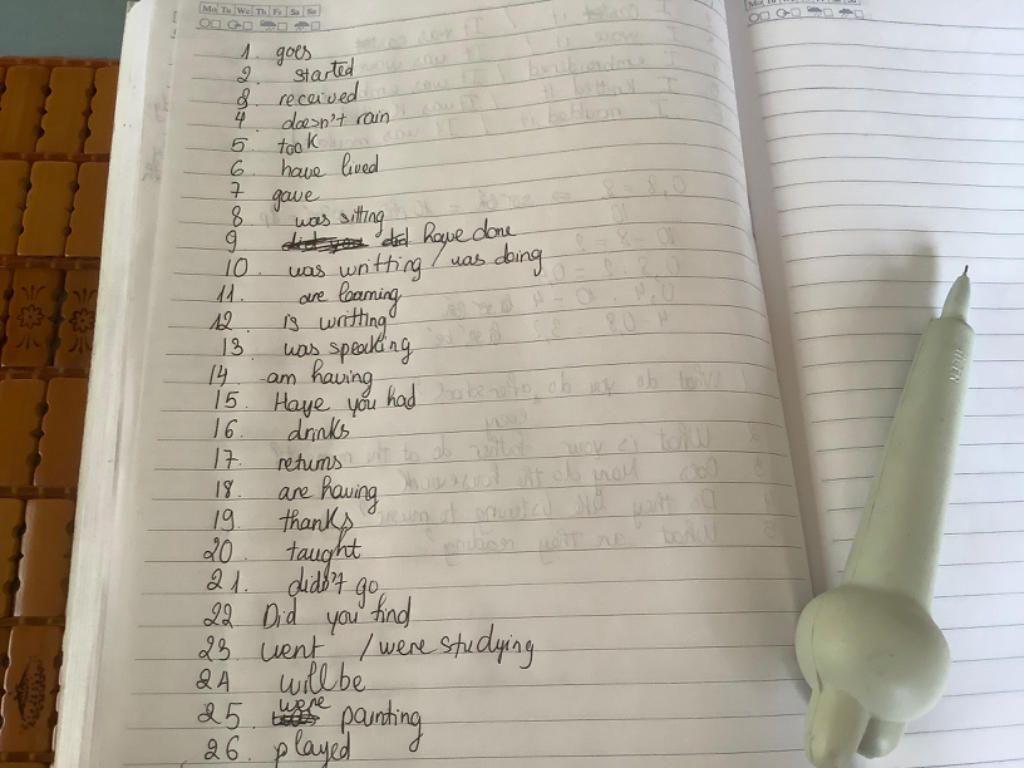 Mo Tu We Th Fr Sa Su
1. goes
2. started
3. received
4 doesn't rain
5. took
6. have lived
7 gave
8. was sitting
9 have done
10. was writting / was doing
11. are learning
12. is writting
13. was speaking
14. am having
15. Have you had
16. drinks
17. returns
18. are having
19. thanks
20. taught
21. didn't go
22 Did you find
23. went / were studying
24 will be
25 were painting
26. played